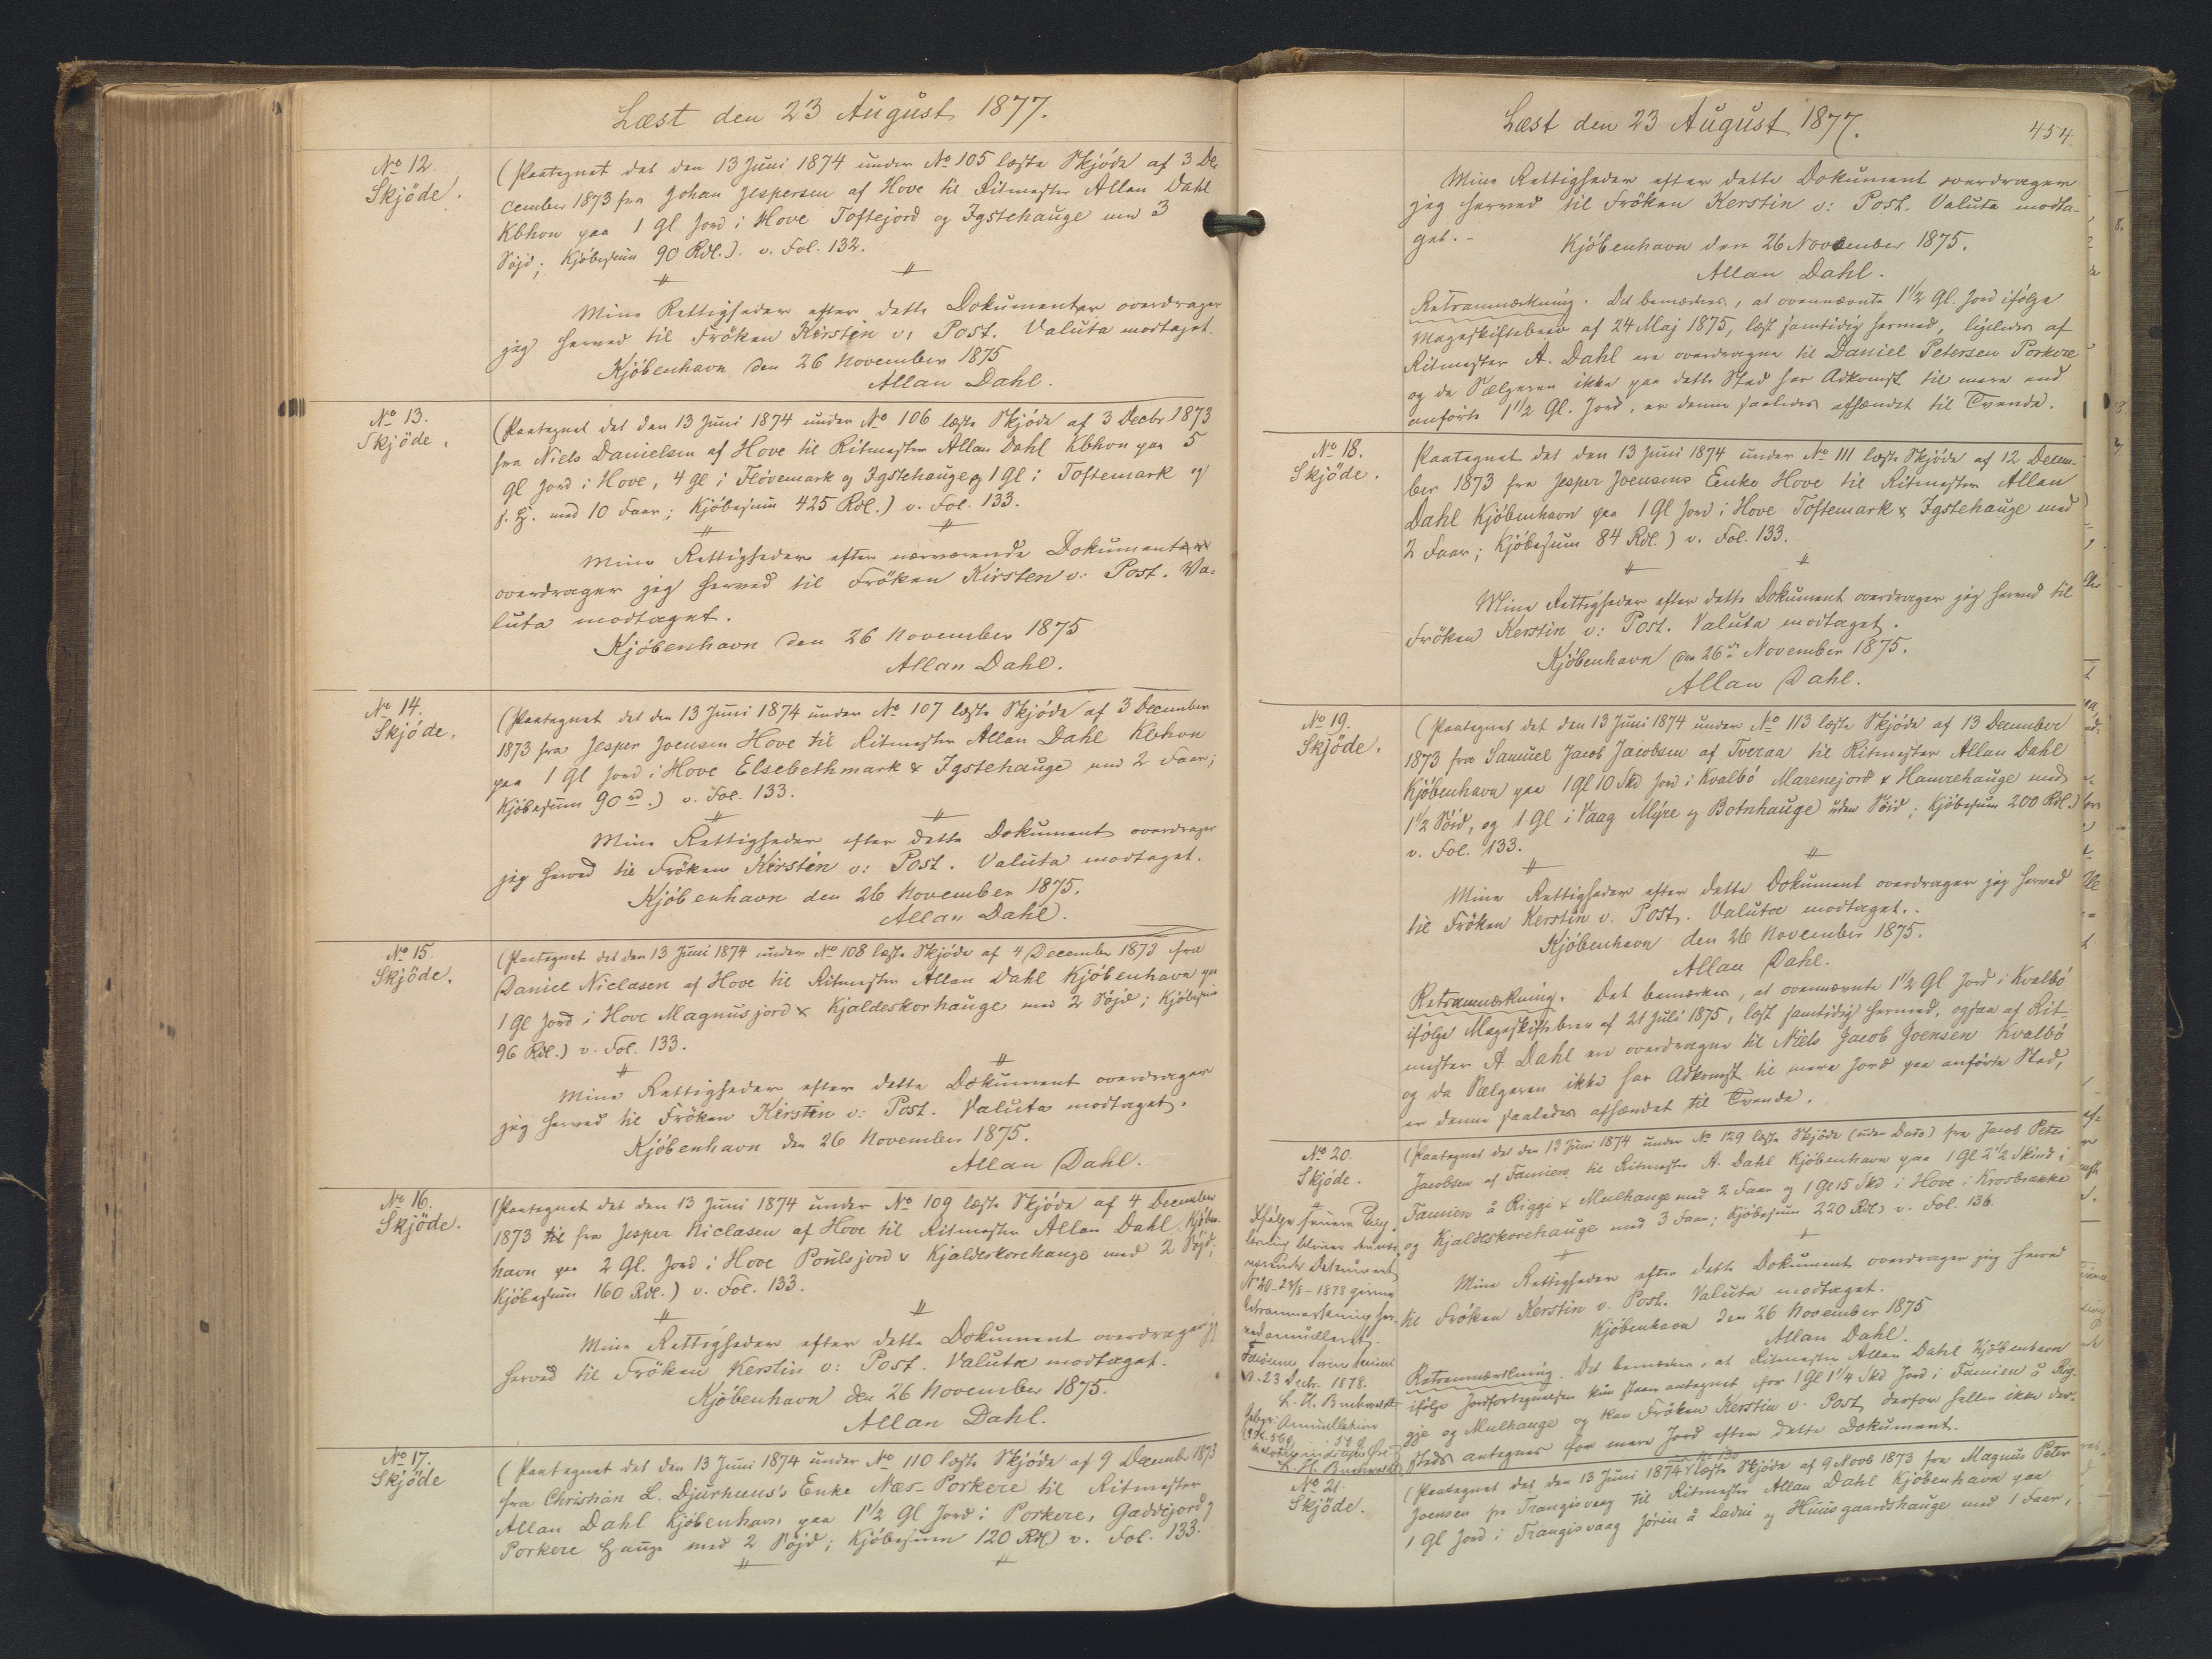 Læst den 23 August 1877.
No 12.
Skjöde.
(Paategnet det den 13 Juni 1874 under No 105 læste Skjöde af 3 De-
cember 1873 fra Johan Jespersen af Hove til Ritmester Allan Dahl
Kbhvn paa 1 Gl Jord i Hove Toftejord og Igstehauge med 3
Söjd; Kjöbesum 90 Rdl.). v. Fol. 132.
Mine Rettigheder efter dette Dokumenter overdrager
jeg herved til Fröken Kirstin v: Post. Valuta modtaget.
Kjöbenhavn den 26 November 1875
Allan Dahl.
No 13.
Skjöde.
(Paategnet det den 13 Juni 1874 under No 106 læste Skjöde af 3 Decbr 1873
fra Niels Danielsen af Hove til Ritmester Allan Dahl Kbhvn paa 5
Gl Jord i Hove, 4 Gl i Flövemark og Igstehauge og 1 Gl i Toftemark og
s. H. med 10 Faar; Kjöbesum 425 Rdl.) v. Fol. 133.
Mine Rettigheder efter nærværende Dokumenter
overdrager jeg herved til Fröken Kirsten v: Post. Va-
luta modtaget.
Kjöbenhavn den 26 November 1875
Allan Dahl.
No 14.
Skjöde.
(Paategnet det den 13 Juni 1874 under No 107 læste Skjöde af 3 December
1873 fra Jesper Joensen Hove til Ritmester Allan Dahl Kbhvn
paa 1 Gl Jord i Hove Elsebethmark & Igstehauge med 2 Faar;
Kjöbesum 90 rd.) v. Fol. 133.
Mine Rettigheder efter dette Dokument overdrager
jeg herved til Fröken Kirstin v: Post. Valuta modtaget.
Kjöbenhavn den 26 November 1875.
Allan Dahl.
No 15
Skjöde.
(Paategnet det den 13 Juni 1874 under No 108 læste Skjöde af 4 December 1873 fra
Daniel Niclasen af Hove til Ritmester Allan Dahl Kjöbenhavn paa
1 Gl Jord i Hove Magnusjord & Kjaldeskorhauge med 2 Söjd; Kjöbesum
96 Rdl.) v. Fol. 133.
Mine Rettigheder efter dette Dokument overdrager
jeg herved til Fröken Kirstin v: Post. Valuta modtaget.
Kjöbenhavn den 26 November 1875.
Allan Dahl.
No 16.
Skjöde.
(Paategnet det den 13 Juni 1874 under No 109 læste Skjöde af 4 December
1873 til fra Jesper Niclasen af Hove til Ritmester Allan Dahl Kjöben-
havn paa 2 Gl. Jord i Hove Poulsjord & Kjaldeskorehauge med 2 Söjd;
Kjöbesum 160 Rdl.) v. Fol. 133.
Mine Rettigheder efter dette Dokument overdrager jeg
herved til Fröken Kerstin v: Post. Valuta modtaget.
Kjöbenhavn den 26 November 1875.
Allan Dahl.
No 17.
Skjöde
(Paategnet det den 13 Juni 1874 under No 110 læste Skjöde af 9 Decembr 1873
fra Christian L. Djurhuus's Enke Næs-Porkere til Ritmester
Allan Dahl Kjöbenhavn paa 1½ Gl Jord i Porkere, Gaddejord og
Porkere Hauge med 2 Söjd; Kjöbesum 120 Rdl) v. Fol. 133.
Læst den 23 August 1877.
454.
Mine Rettigheder efter dette Dokument overdrager
jeg herved til Fröken Kerstin v: Post. Valuta modta-
get.-
Kjöbenhavn den 26 November 1875.
Allan Dahl.
Retsanmærkning. Det bemærkes, at ovennævnte 1½ Gl. Jord ifölge
Mageskiftebrev af 24 Maj 1875, læst samtidig hermed, ligeledes af
Ritmester A. Dahl ere overdragne til Daniel Petersen Porkere
og da Sælgeren ikke paa dette Sted har Adkomst til mere end
anförte 1½ Gl. Jord, er denne saaledes afhændet til Tvende.
No 18.
Skjöde.
Paategnet det den 13 Juni 1874 under No 111 læste Skjöde af 12 Decem-
ber 1873 fra Jesper Joensens Enke Hove til Ritmester Allan
Dahl Kjöbenhavn paa 1 Gl Jord i Hove Toftemark & Igstehauge med
2 Faar; Kjöbesum 84 Rdl.) v. Fol. 133.
Mine Rettigheder efter dette Dokument overdrager jeg herved til
Fröken Kerstin v: Post. Valuta modtaget.
Kjöbenhavn den 26de November 1875.
Allan Dahl.
No 19.
Skjöde.
(Paategnet det den 13 Juni 1874 under No 113 læste Skjöde af 13 December
1873 fra Samuel Jacob Jacobsen af Tveraa til Ritmester Allan Dahl
Kjöbenhavn paa 1 Gl 10 Skd Jord i Kvalbö Marenejord & Hamrehauge med
1½ Söid, og 1 Gl i Vaag Mýre og Botnhauge uden Söid; Kjöbesum 200 Rdl.)
v. Fol. 133.
Mine Rettigheder efter dette Dokument overdrager jeg herved
til Fröken Kerstin v. Post. Valuta modtaget.
Kjöbenhavn den 26 November 1875.
Allan Dahl.
Retsanmærkning. Det bemærkes, at ovennævnte 1½ Gl Jord i Kvalbö
ifölge Mageskiftebrev af 21 Juli 1875, læst samtidig hermed, ogsaa af Rit-
mester A Dahl ere overdragne til Niels Jacob Joensen Kvalbö
og da Sælgeren ikke har Adkomst til mere Jord paa anförte Sted,
er denne saaledes afhændet til Tvende.
No 20.
Skjöde.
(Paategnet det den 13 Juni 1874 under No 129 læste Skjöde (uden Dato) fra Jacob Peter
Jacobsen af Famien til Ritmester A. Dahl Kjöbenhavn paa 1 Gl 2½ Skind i
Famien å Riggi & Mulhauge med 2 Faar og 1 Gl 15 Skd i Hove i Krosbrække
og Kjaldeskorehauge med 3 Faar; Kjöbesum 220 Rdl) v. Fol. 136.
Mine Rettigheder efter dette Dokument overdrager jeg herved
til Fröken Kerstin v. Post. Valuta modtaget.
Kjöbenhavn den 26 November 1875
Allan Dahl.
Retsanmærkning. Det bemærkes, at Ritmester Allan Dahl Kjöbenhavn
ifölge Jordfortegnelsen kun staar antegnet for 1 Gl 1¼ Skd Jord i Famien å Rig-
gje og Mulhauge og kan Fröken Kerstin v. Post derfor heller ikke der-
steds antegnes for mere Jord efter dette Dokument.
No 20 - 23/8 - 1878
Retsanmærkning her-
ved annulleret.
23 Decbr. 1878.
No 21.
Skjöde.
(Paategnet det den 13 Juni 1874 læste Skjöde af 9 Novb 1873 fra Magnus Peter
Joensen fra Trangisvaag til Ritmester Allan Dahl Kjöbenhavn paa
1 Gl Jord i Trangisvaag Jörin å Ladni og Huusgaardshauge med 1 Faar,